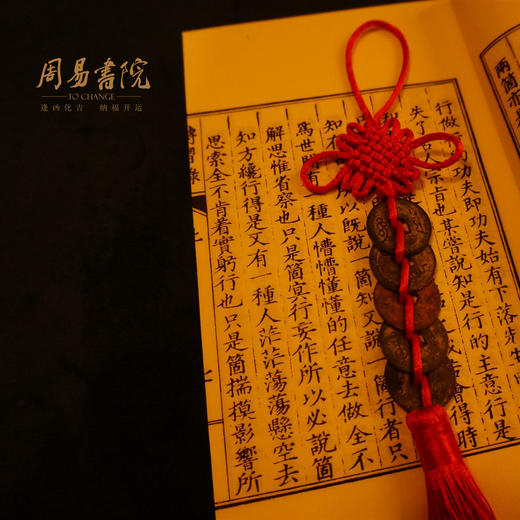 周易書院
TO CHANGE
逢凶化吉 纳福开运
兩箇亦
行做 功夫即功夫始有下落
失了古人宗旨也某嘗說知是行的主意行是
知 會得時
知在 所以既說一箇知又說 箇行者只
爲世間有一種人懵懵懂懂的任意去做全不
解思惟省察也只是箇冥行妄作所以必說箇
知方纔行得是又有一種人茫茫蕩蕩懸空去
思索全不肯着實躬行也只是箇揣摸影響所
傳習錄